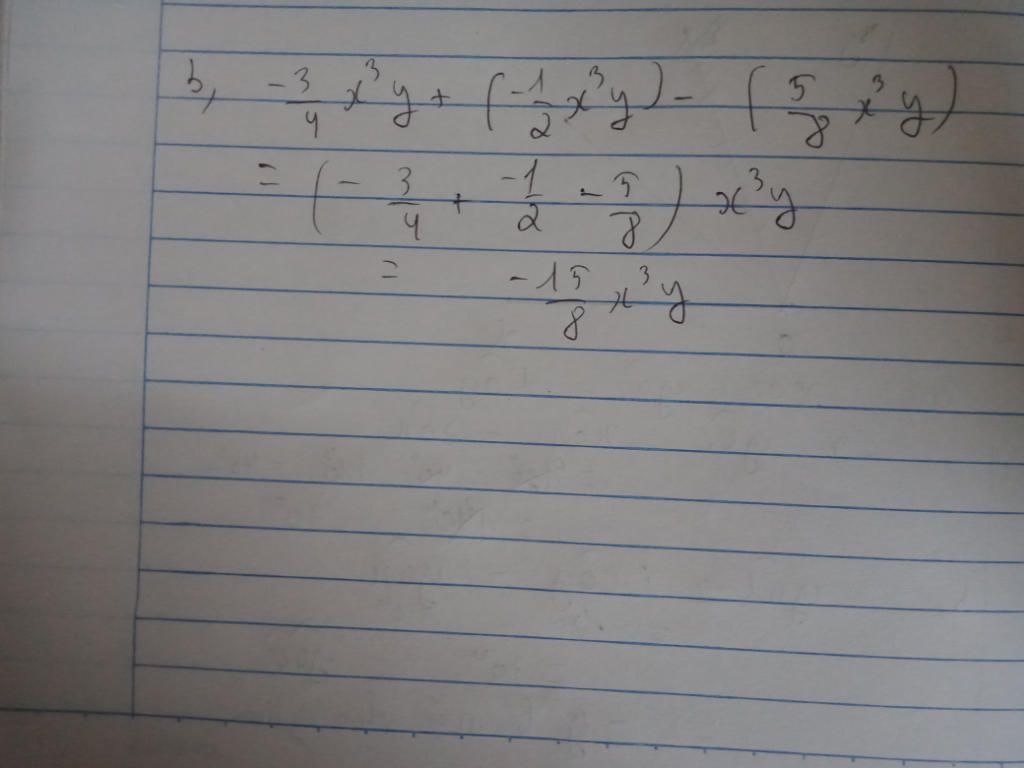 b, -3/4 x³y + (-1/2 x³y) - (5/8 x³y)
= (- 3/4 + -1/2 - 5/8) x³y
= -15/8 x³y